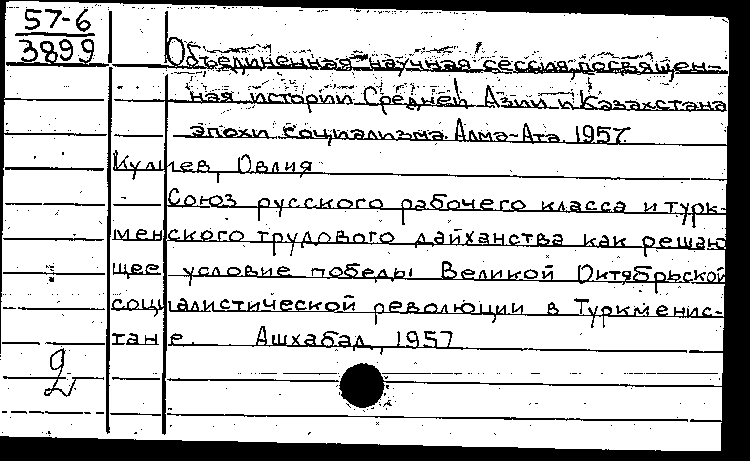 57-6
3899
Объединенная научная сессия, посвящен-
ная истории Средней Азии и Казахстана
эпохи социализма Алма-Ата 1957.
Кулиев, Овлия
Союз русского рабочего класса и турк-
менского трудового дайханства как решаю
щее условие победы Великой Октябрьской
социалистической революции в Туркменис-
тане. Ашхабад, 1957
2